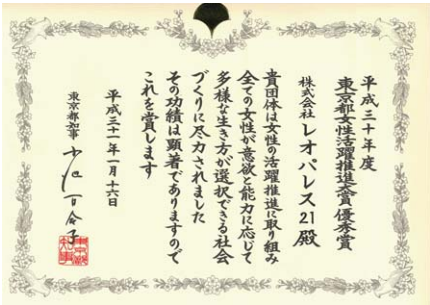 平成三十年度
東京都女性活躍推進大賞優秀賞
株式会社レオパレス21殿
貴団体は女性の活躍推進に取り組み
全ての女性が意欲と能力に応じて
多様な生き方が選択できる社会
づくりに尽力されました
その功績は顕著でありますので
これを賞します
平成三十一年一月十六日
東京都知事 小池百合子